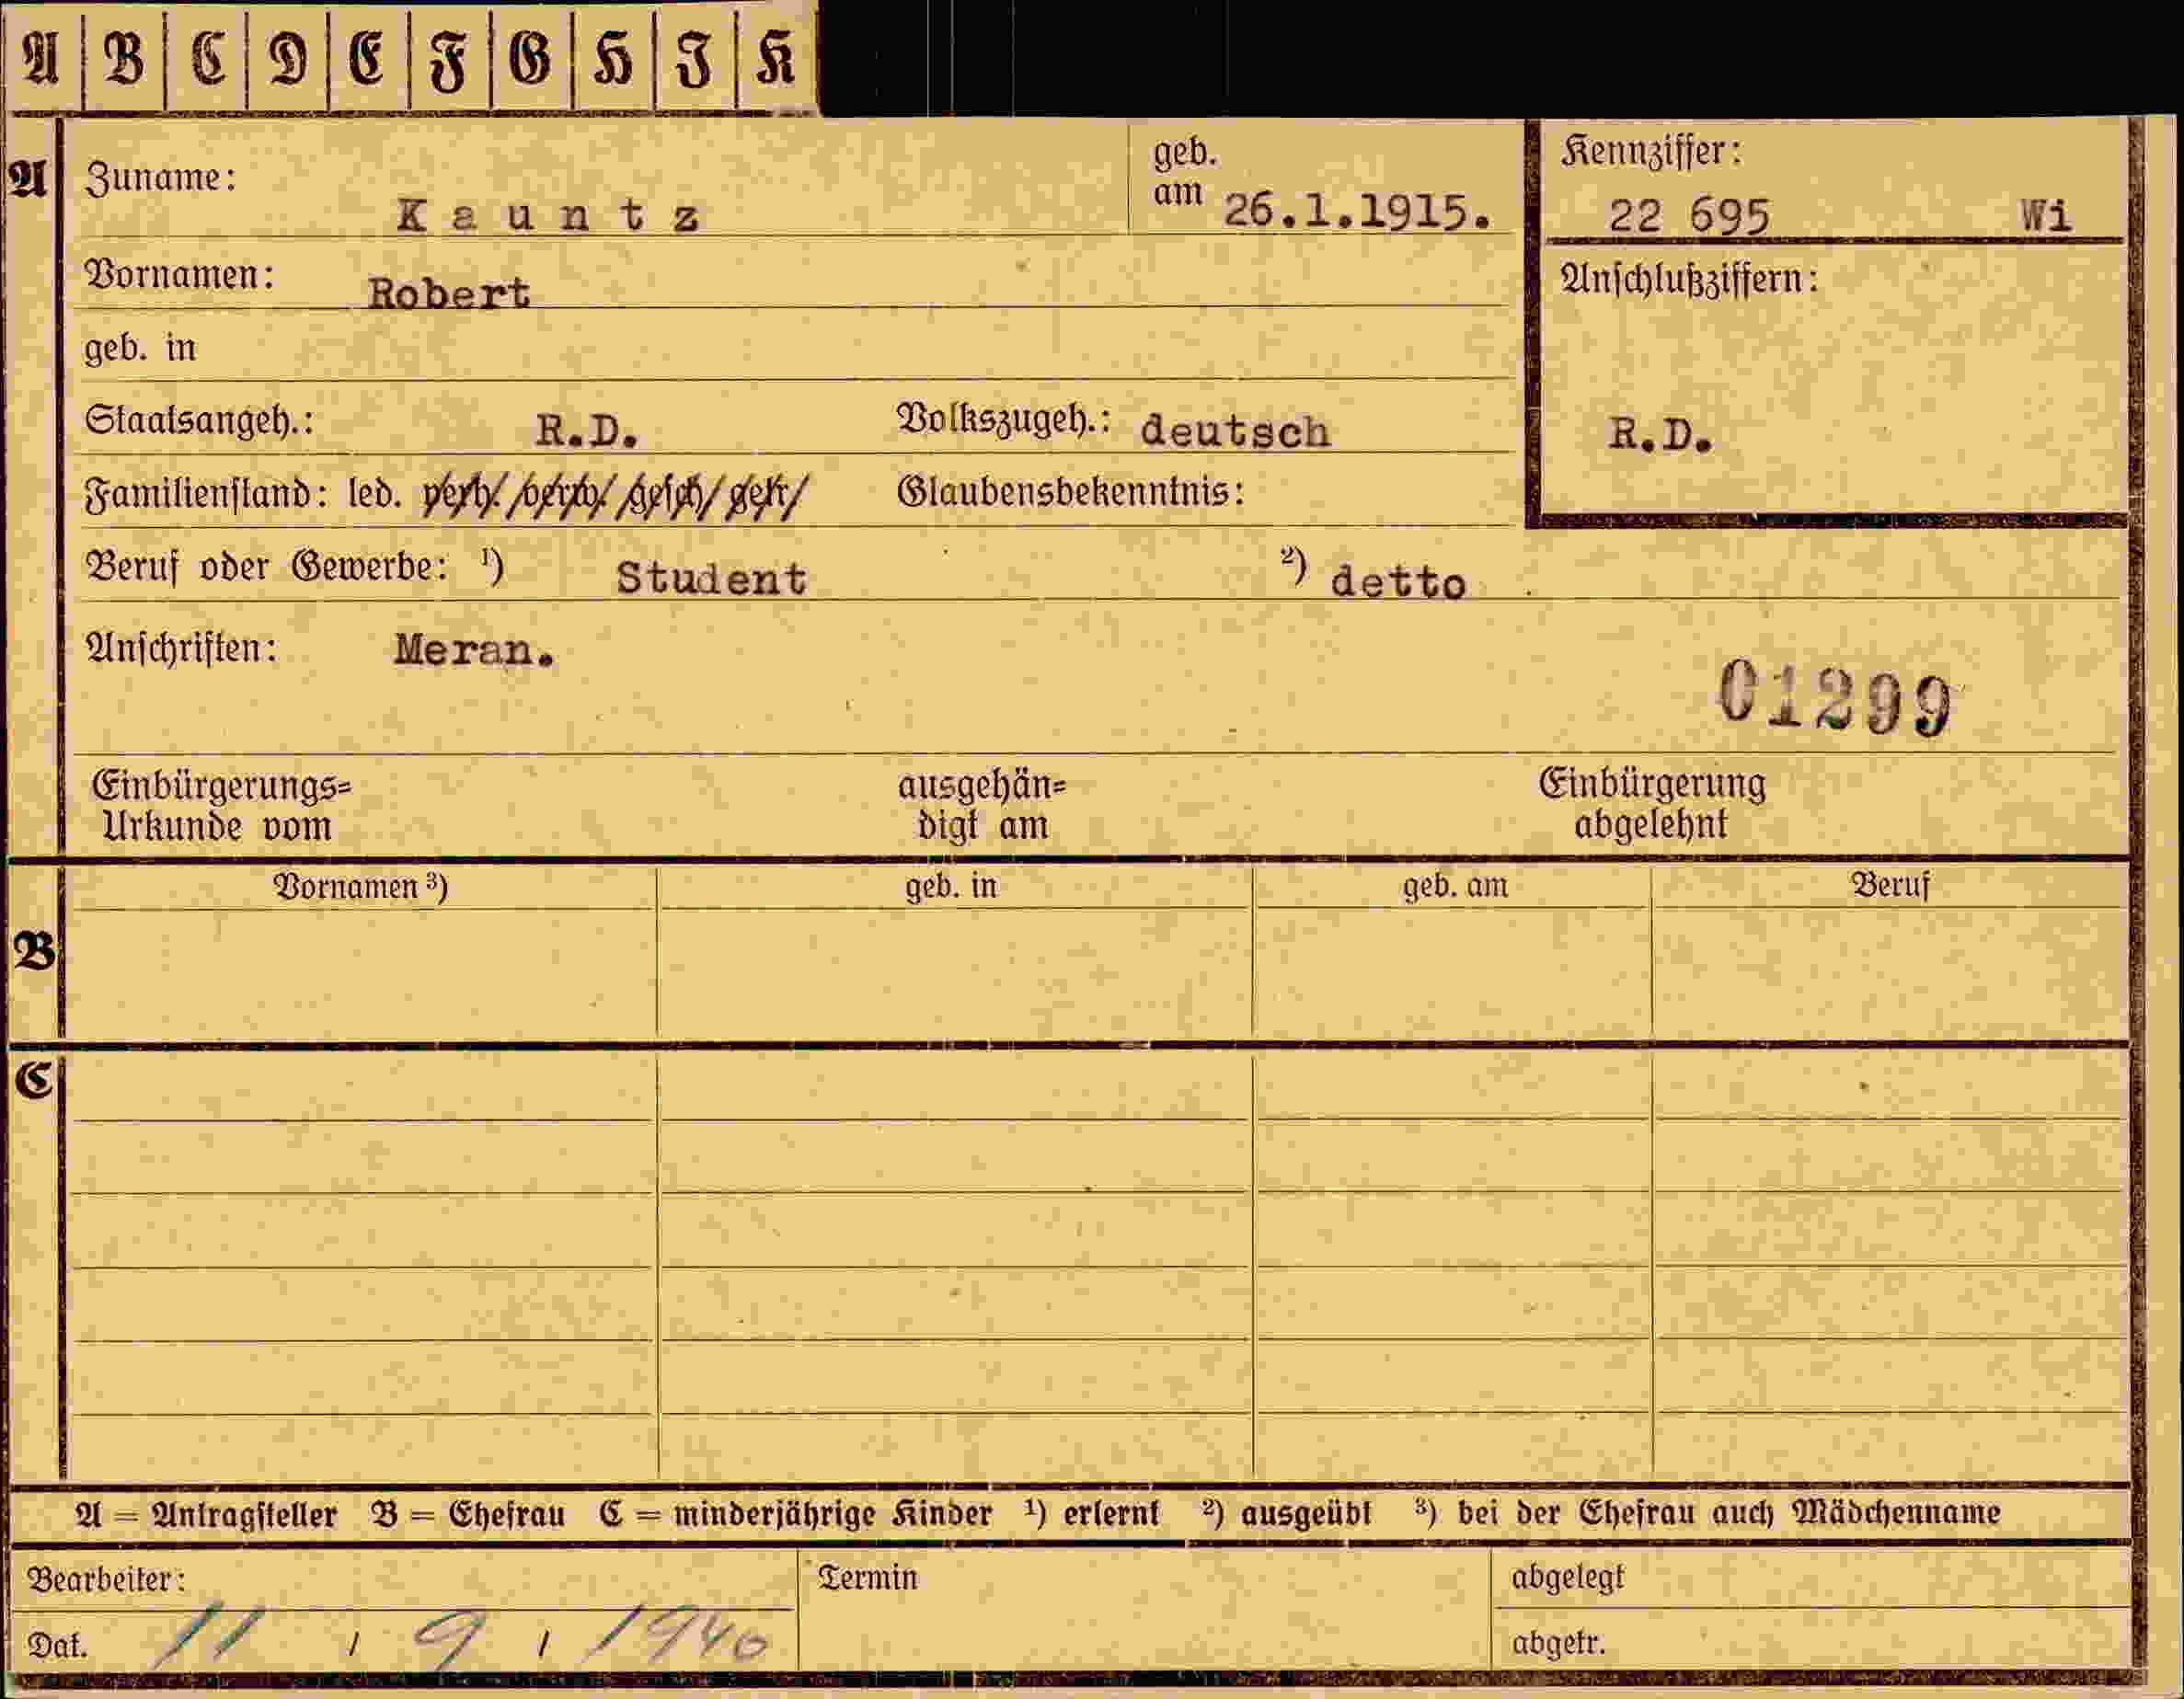 A B C D E F G H I K
A Zuname: Kauntz geb. am 26.1.1915. Kennziffer: 22 695 Wi
Vornamen: Robert Anschlußziffern:
geb. in
Staatsangeh.: R.D. Volkszugeh.: deutsch R.D.
Familienstand: led. verh. verw. gesch. getr. Glaubensbekenntnis:
Beruf oder Gewerbe: ¹) Student ²) detto
Anschriften: Meran.
01299
Einbürgerungs=
Urkunde vom
ausgehän=
digt am
Einbürgerung
abgelehnt
B Vornamen ³) geb. in geb. am Beruf
C
A = Antragsteller B = Ehefrau C = minderjährige Kinder ¹) erlernt ²) ausgeübt ³) bei der Ehefrau auch Mädchenname
Bearbeiter: Termin abgelegt
Dat. 11 / 9 / 1940 abgetr.